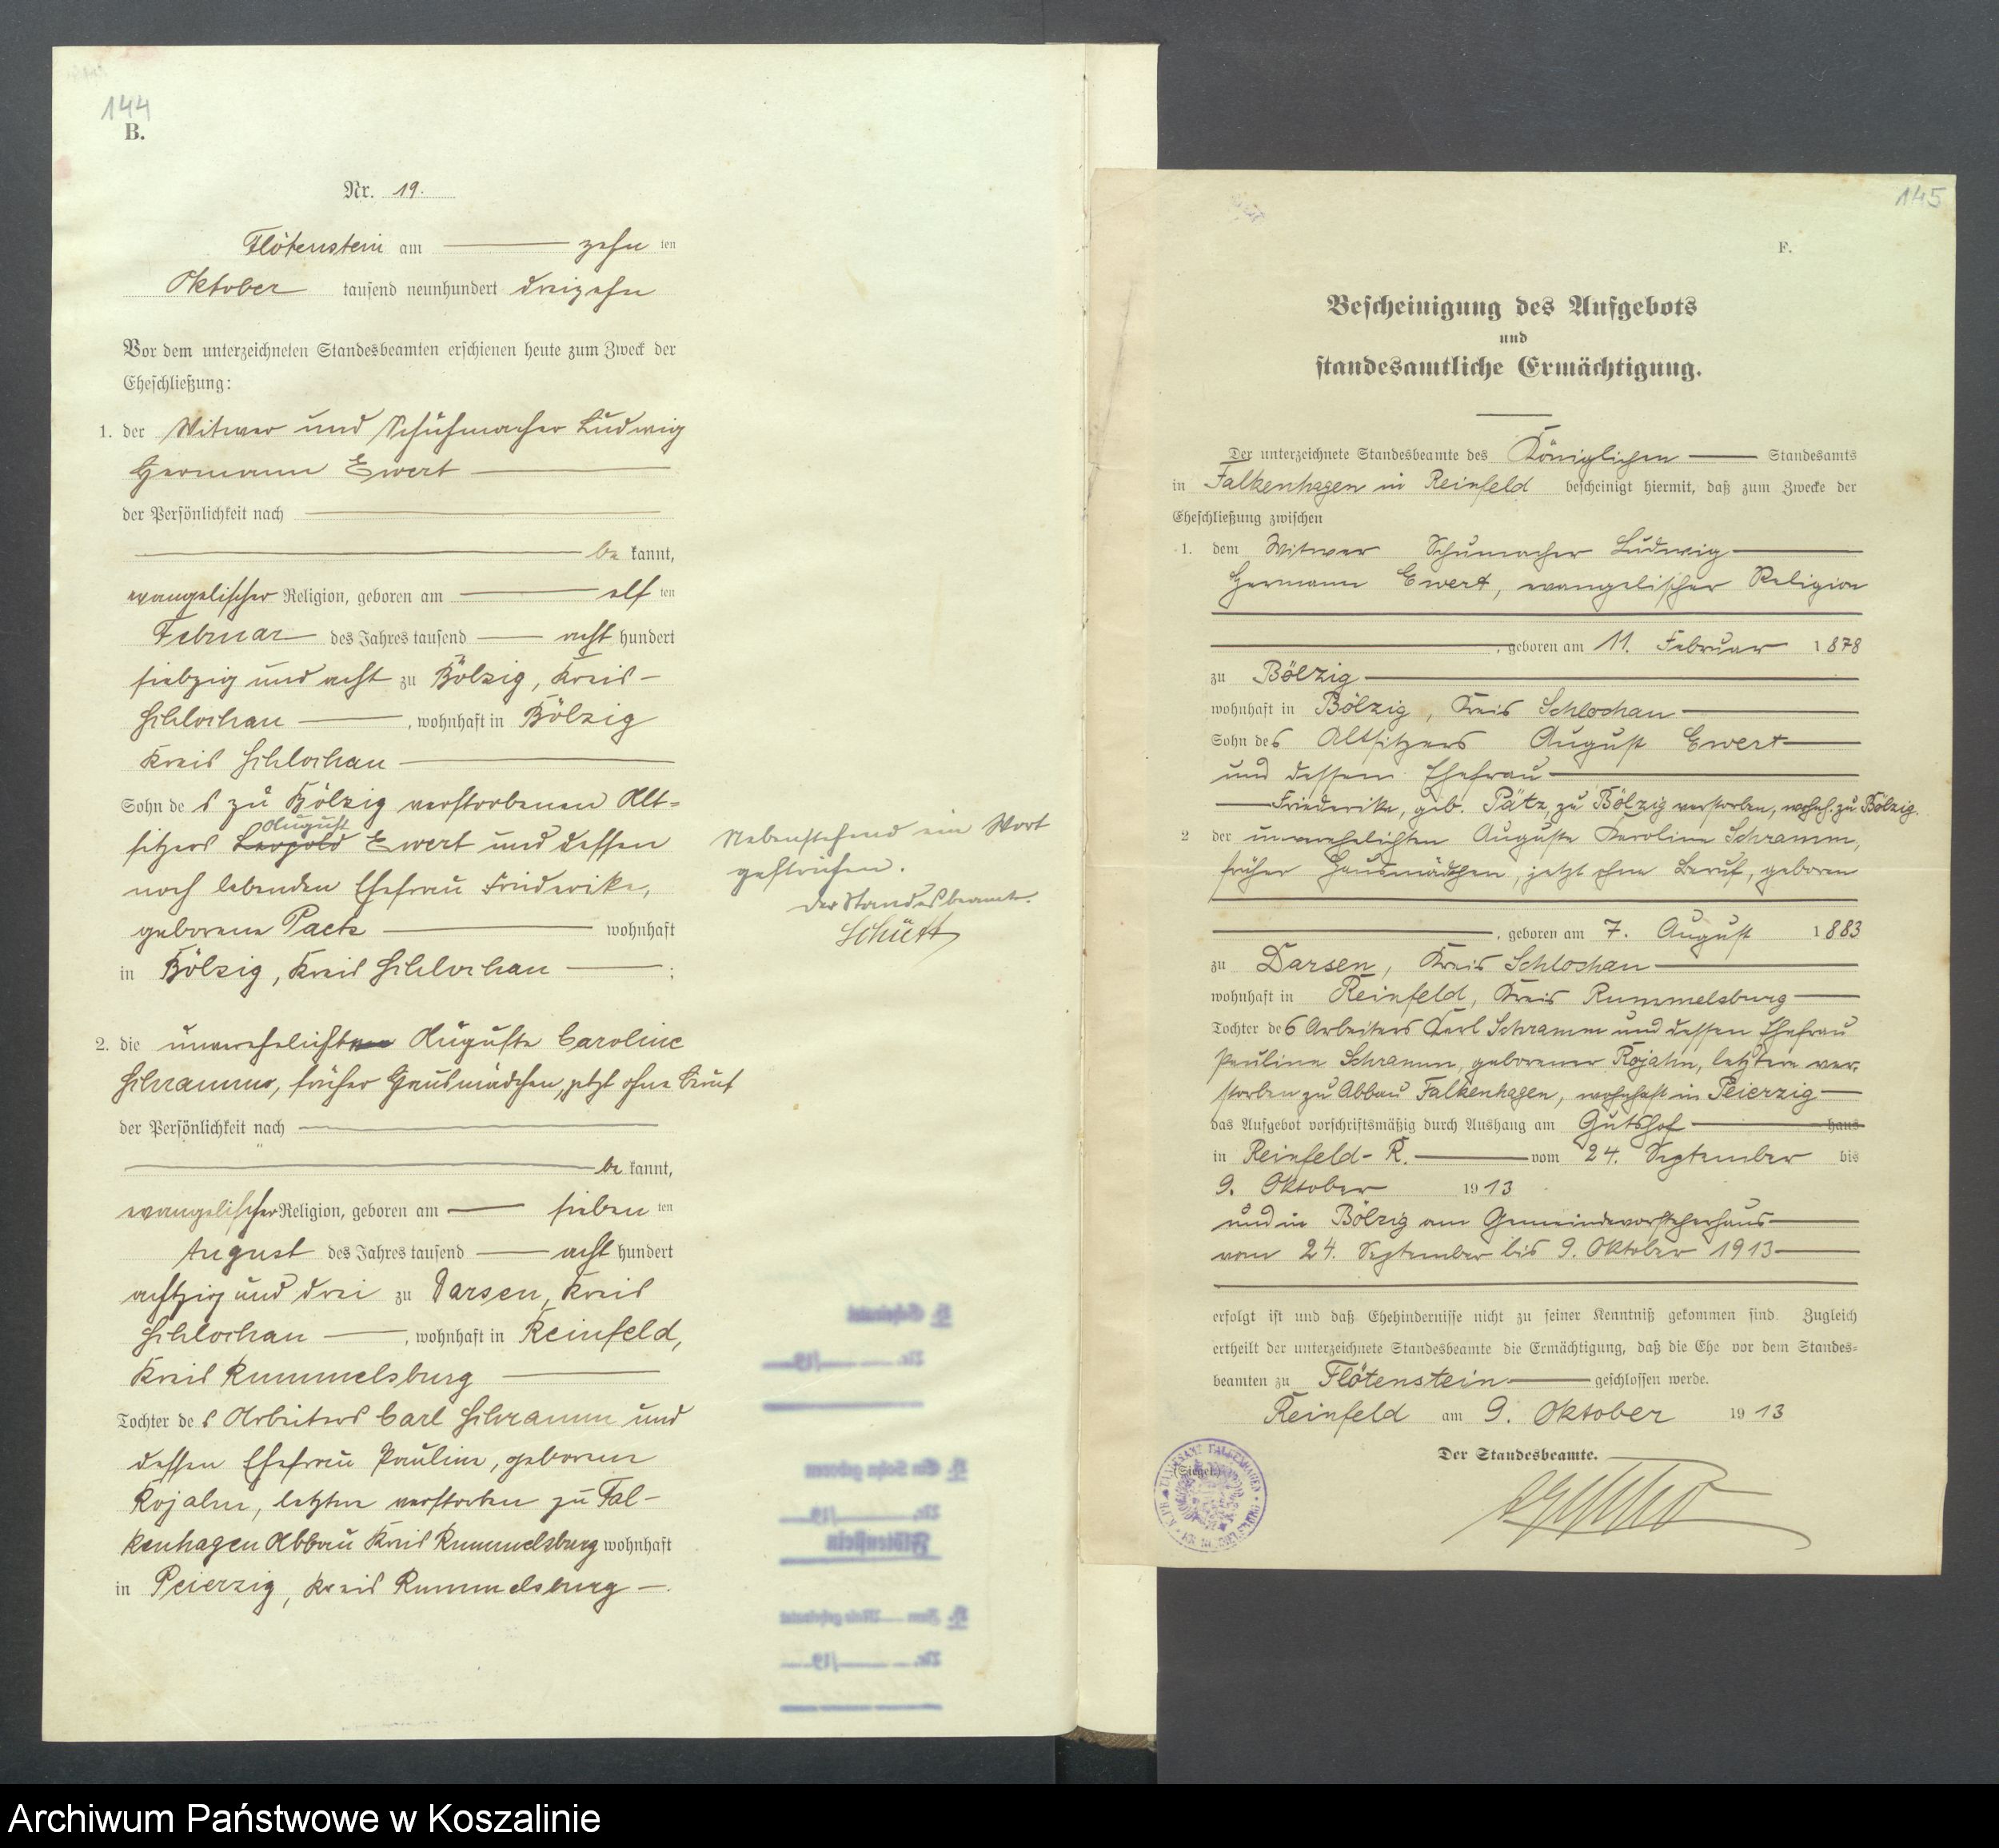 144
B.
Nr. 19.
Flötenstein am zehn ten
Oktober tausend neunhundert dreizehn
Vor dem unterzeichneten Standesbeamten erschienen heute zum Zweck der
Eheschließung:
1. der Witwer und Schuhmacher Ludwig
Hermann Ewert
der Persönlichkeit nach
be kannt,
evangelischer Religion, geboren am elf ten
Februar des Jahres tausend acht hundert
siebzig und acht zu Bölzig, Kreis
Schlochau, wohnhaft in Bölzig
Kreis Schlochau
Sohn des zu Bölzig verstorbenen Alt=
August
sitzers Leopold Ewert und dessen
noch lebenden Ehefrau Friederike,
geborene Paetz wohnhaft
in Bölzig, Kreis Schlochau ;
Nebenstehend ein Wort
gestrichen.
Der Standesbeamte.
Schütt
2. die unverehelichte Auguste Caroline
Schramm, früher Hausmädchen, jetzt ohne Beruf
der Persönlichkeit nach
be kannt,
evangelischer Religion, geboren am sieben ten
August des Jahres tausend acht hundert
achtzig und drei zu Darsen, Kreis
Schlochau, wohnhaft in Reinfeld,
Kreis Rummelsburg
Tochter des Arbeiters Carl Schramm und
dessen Ehefrau Pauline, geborene
Rojahn, letztere verstorben zu Fal-
kenhagen Abbau Kreis Rummelsburg wohnhaft
in Peierzig, Kreis Rummelsburg.
145
F.
Bescheinigung des Aufgebots
und
standesamtliche Ermächtigung.
Der unterzeichnete Standesbeamte des Königlichen Standesamts
in Falkenhagen in Reinfeld bescheinigt hiermit, daß zum Zwecke der
Eheschließung zwischen
1. dem Witwer Schumacher Ludwig
Hermann Ewert, evangelischer Religion
, geboren am 11. Februar 1878
zu Bölzig
wohnhaft in Bölzig, Kreis Schlochau
Sohn des Altsitzers August Ewert
und dessen Ehefrau
Friederike, geb. Pätz, zu Bölzig verstorben, wohnh. zu Bölzig.
2 der unverehelichten Auguste Karoline Schramm,
früher Hausmädchen, jetzt ohne Beruf, geboren
, geboren am 7. August 1883
zu Darsen, Kreis Schlochau
wohnhaft in Reinfeld, Kreis Rummelsburg
Tochter des Arbeiters Karl Schramm und dessen Ehefrau
Pauline Schramm, geborener Rojahn, letztere ver-
storben zu Abbau Falkenhagen, wohnhaft in Peierzig
das Aufgebot vorschriftsmäßig durch Aushang am Gutshof haus
in Reinfeld-R. vom 24. September bis
9. Oktober 1913
und in Bölzig am Gemeindevorsteherhaus
vom 24. September bis 9. Oktober 1913
erfolgt ist und daß Ehehindernisse nicht zu seiner Kenntniß gekommen sind. Zugleich
ertheilt der unterzeichnete Standesbeamte die Ermächtigung, daß die Ehe vor dem Standes=
beamten zu Flötenstein geschlossen werde.
Reinfeld am 9. Oktober 1913
Der Standesbeamte.
(Siegel.)
Archiwum Państwowe w Koszalinie